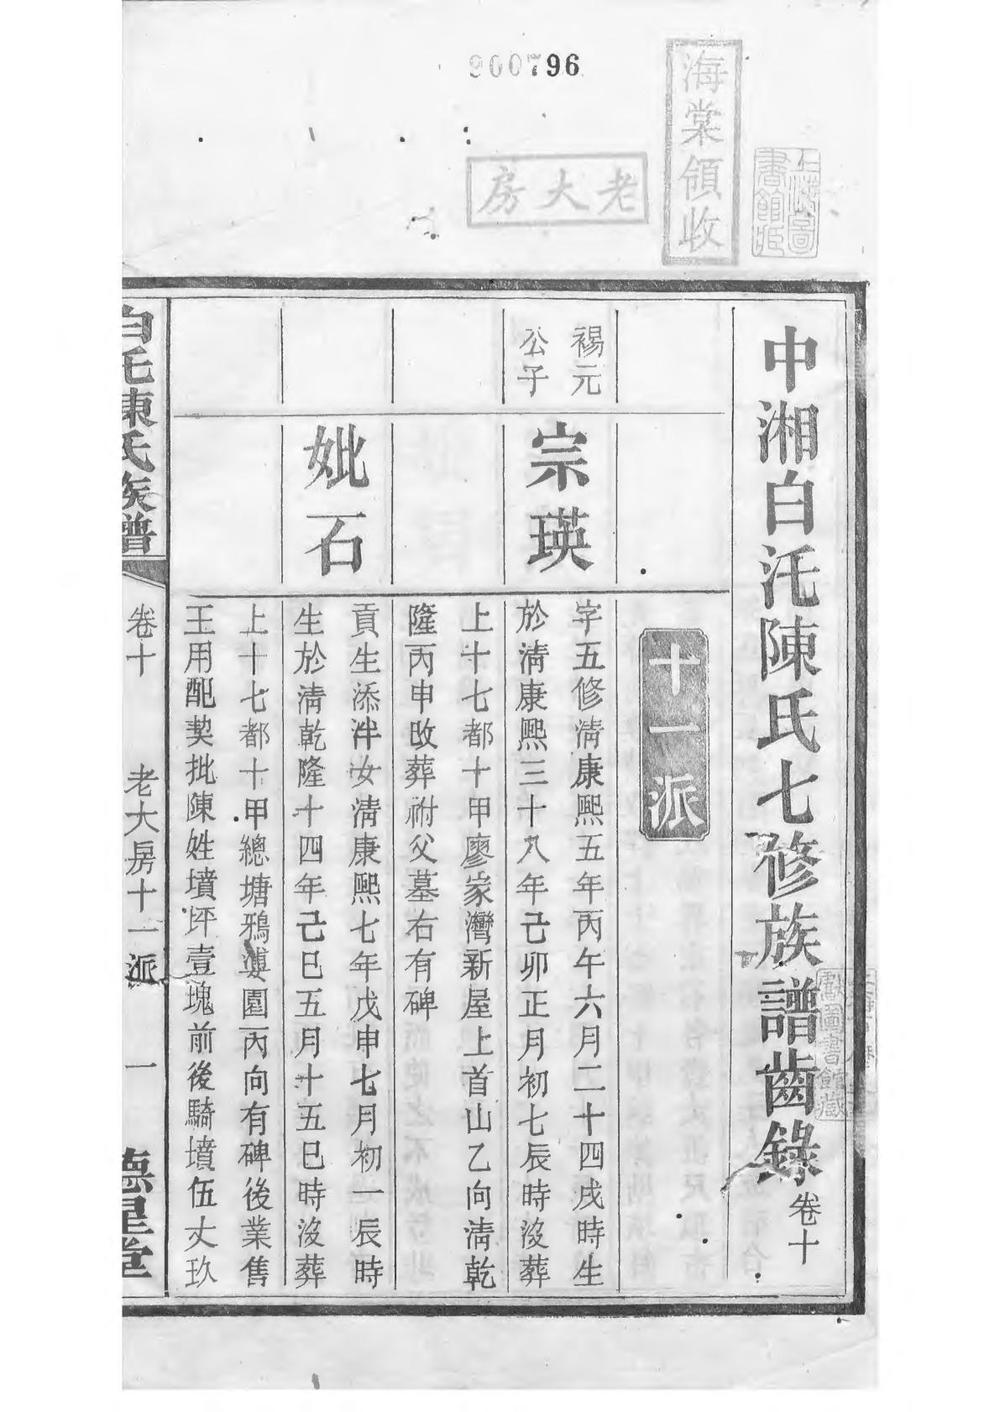 900796
海棠領收
老大房
中湘白汑陳氏七修族譜齒錄 卷十
十一派
禓元
公子
宗瑛
字五修淸康熙五年丙午六月二十四戌時生
於淸康熙三十八年己卯正月初七辰時沒葬
上十七都十甲廖家灣新屋上首山乙向淸乾
隆丙申改葬祔父墓右有碑
妣石
貢生添泮女淸康熙七年戊申七月初一辰時
生於淸乾隆十四年己巳五月十五巳時沒葬
上十七都十甲總塘鴉婆園丙向有碑後業售
王用配契批陳姓墳坪壹塊前後騎墳伍丈玖
白汑陳氏族譜
卷十
老大房十一派
一
德星堂